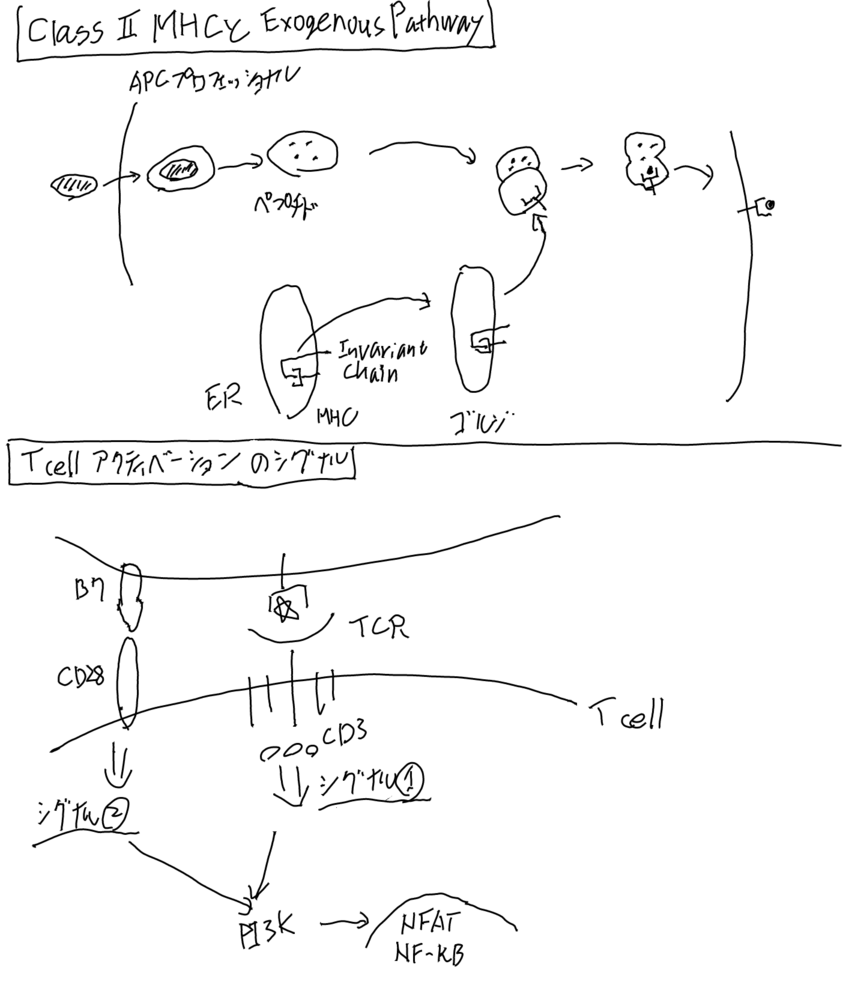 Class II MHCと Exogenous Pathway
APCプロフェッショナル
ペプチド
Invariant
chain
ER
MHC
ゴルジ
T cell アクティベーション のシグナル
B7
TCR
CD28
T cell
CD3
シグナル①
シグナル②
PI3K
NFAT
NF-KB